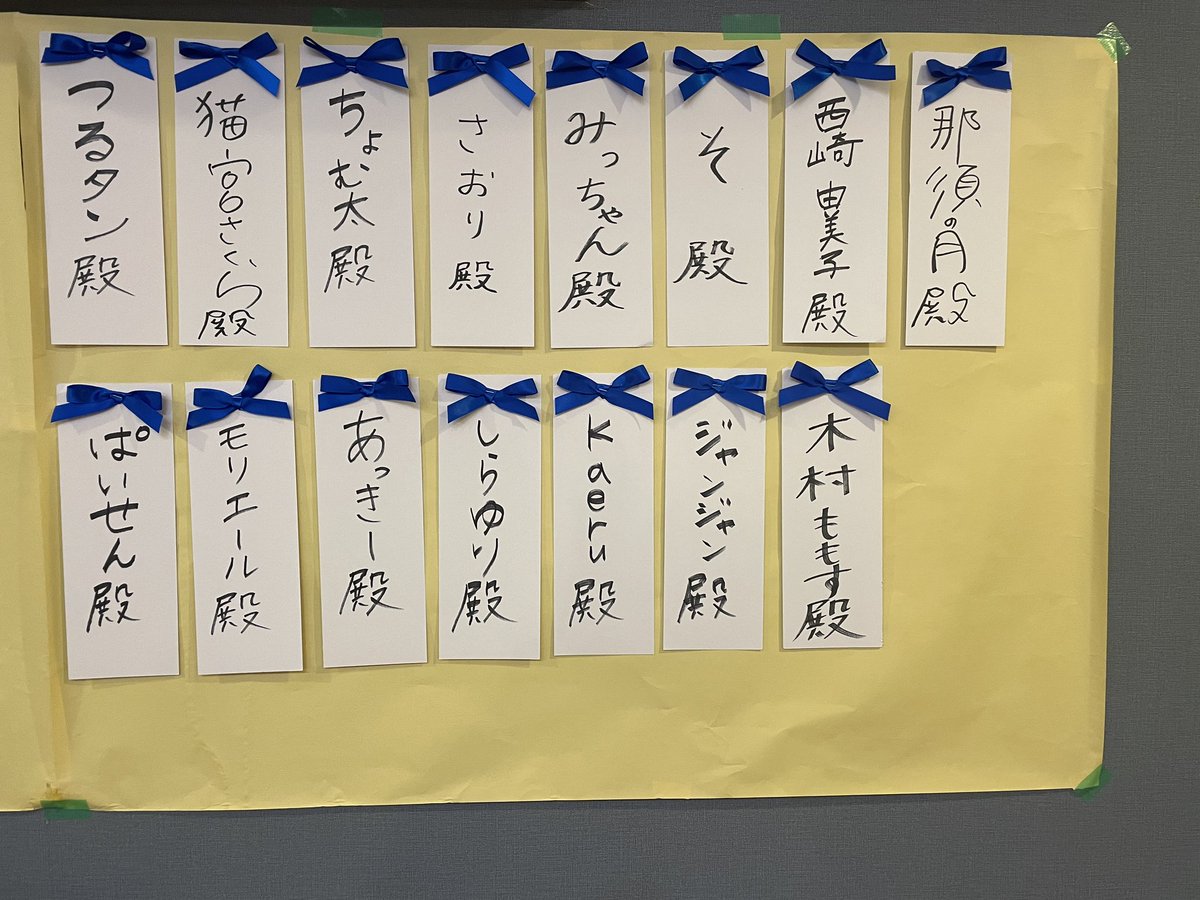 那須の月殿
西崎由美子殿
そ殿
みっちゃん殿
さおり殿
ちょむ太殿
猫宮さくら殿
つるタン殿
木村ももす殿
ジャンジャン殿
Kaeru殿
しらゆり殿
あっきー殿
モリエール殿
ぱいせん殿